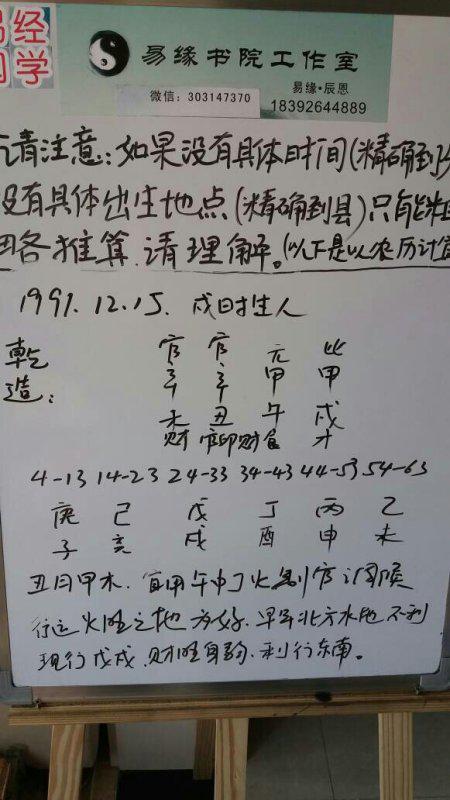 易经
同学
易缘书院工作室
易缘·辰恩
微信：303147370
18392644889
请注意：如果没有具体时间(精确到
没有具体出生地点(精确到县)只能粗
略推算.请理解。(以下是以农历计算
1991.12.15. 戌时生人
乾造： 官 官 元 比
辛 辛 甲 甲
未 丑 午 戌
财 官印财 食 才
4-13 14-23 24-33 34-43 44-53 54-63
庚 己 戊 丁 丙 乙
子 亥 戌 酉 申 未
丑月甲木.宜用午中丁火制官调候
行运火旺之地为好.早年北方水地不利
现行戊戌.财旺身弱.利行东南。